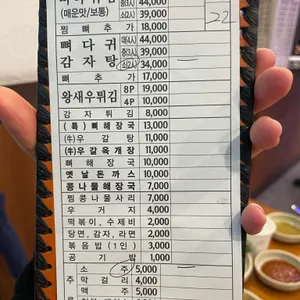 44,000
(매운맛/보통) 소2人 39,000
찜뼈추가 18,000
22
뼈다귀 대4人 44,000
39,000
감자탕 소2人 34,000
뼈추가 17,000
왕새우튀김 8P 19,000
4P 10,000
감자튀김 8,000
(특)뼈해장국 13,000
(牛)우갈탕 11,000
(牛)우갈육개장 11,000
뼈해장국 10,000
옛날돈까스 10,000
콩나물해장국 7,000
찜콩나물사리 7,000
우거지 4,000
떡볶이, 수제비 2,000
당면, 감자, 라면 2,000
볶음밥(1인) 3,000
공기밥 1,000
소주 5,000
막걸리 4,000
맥주 5,000